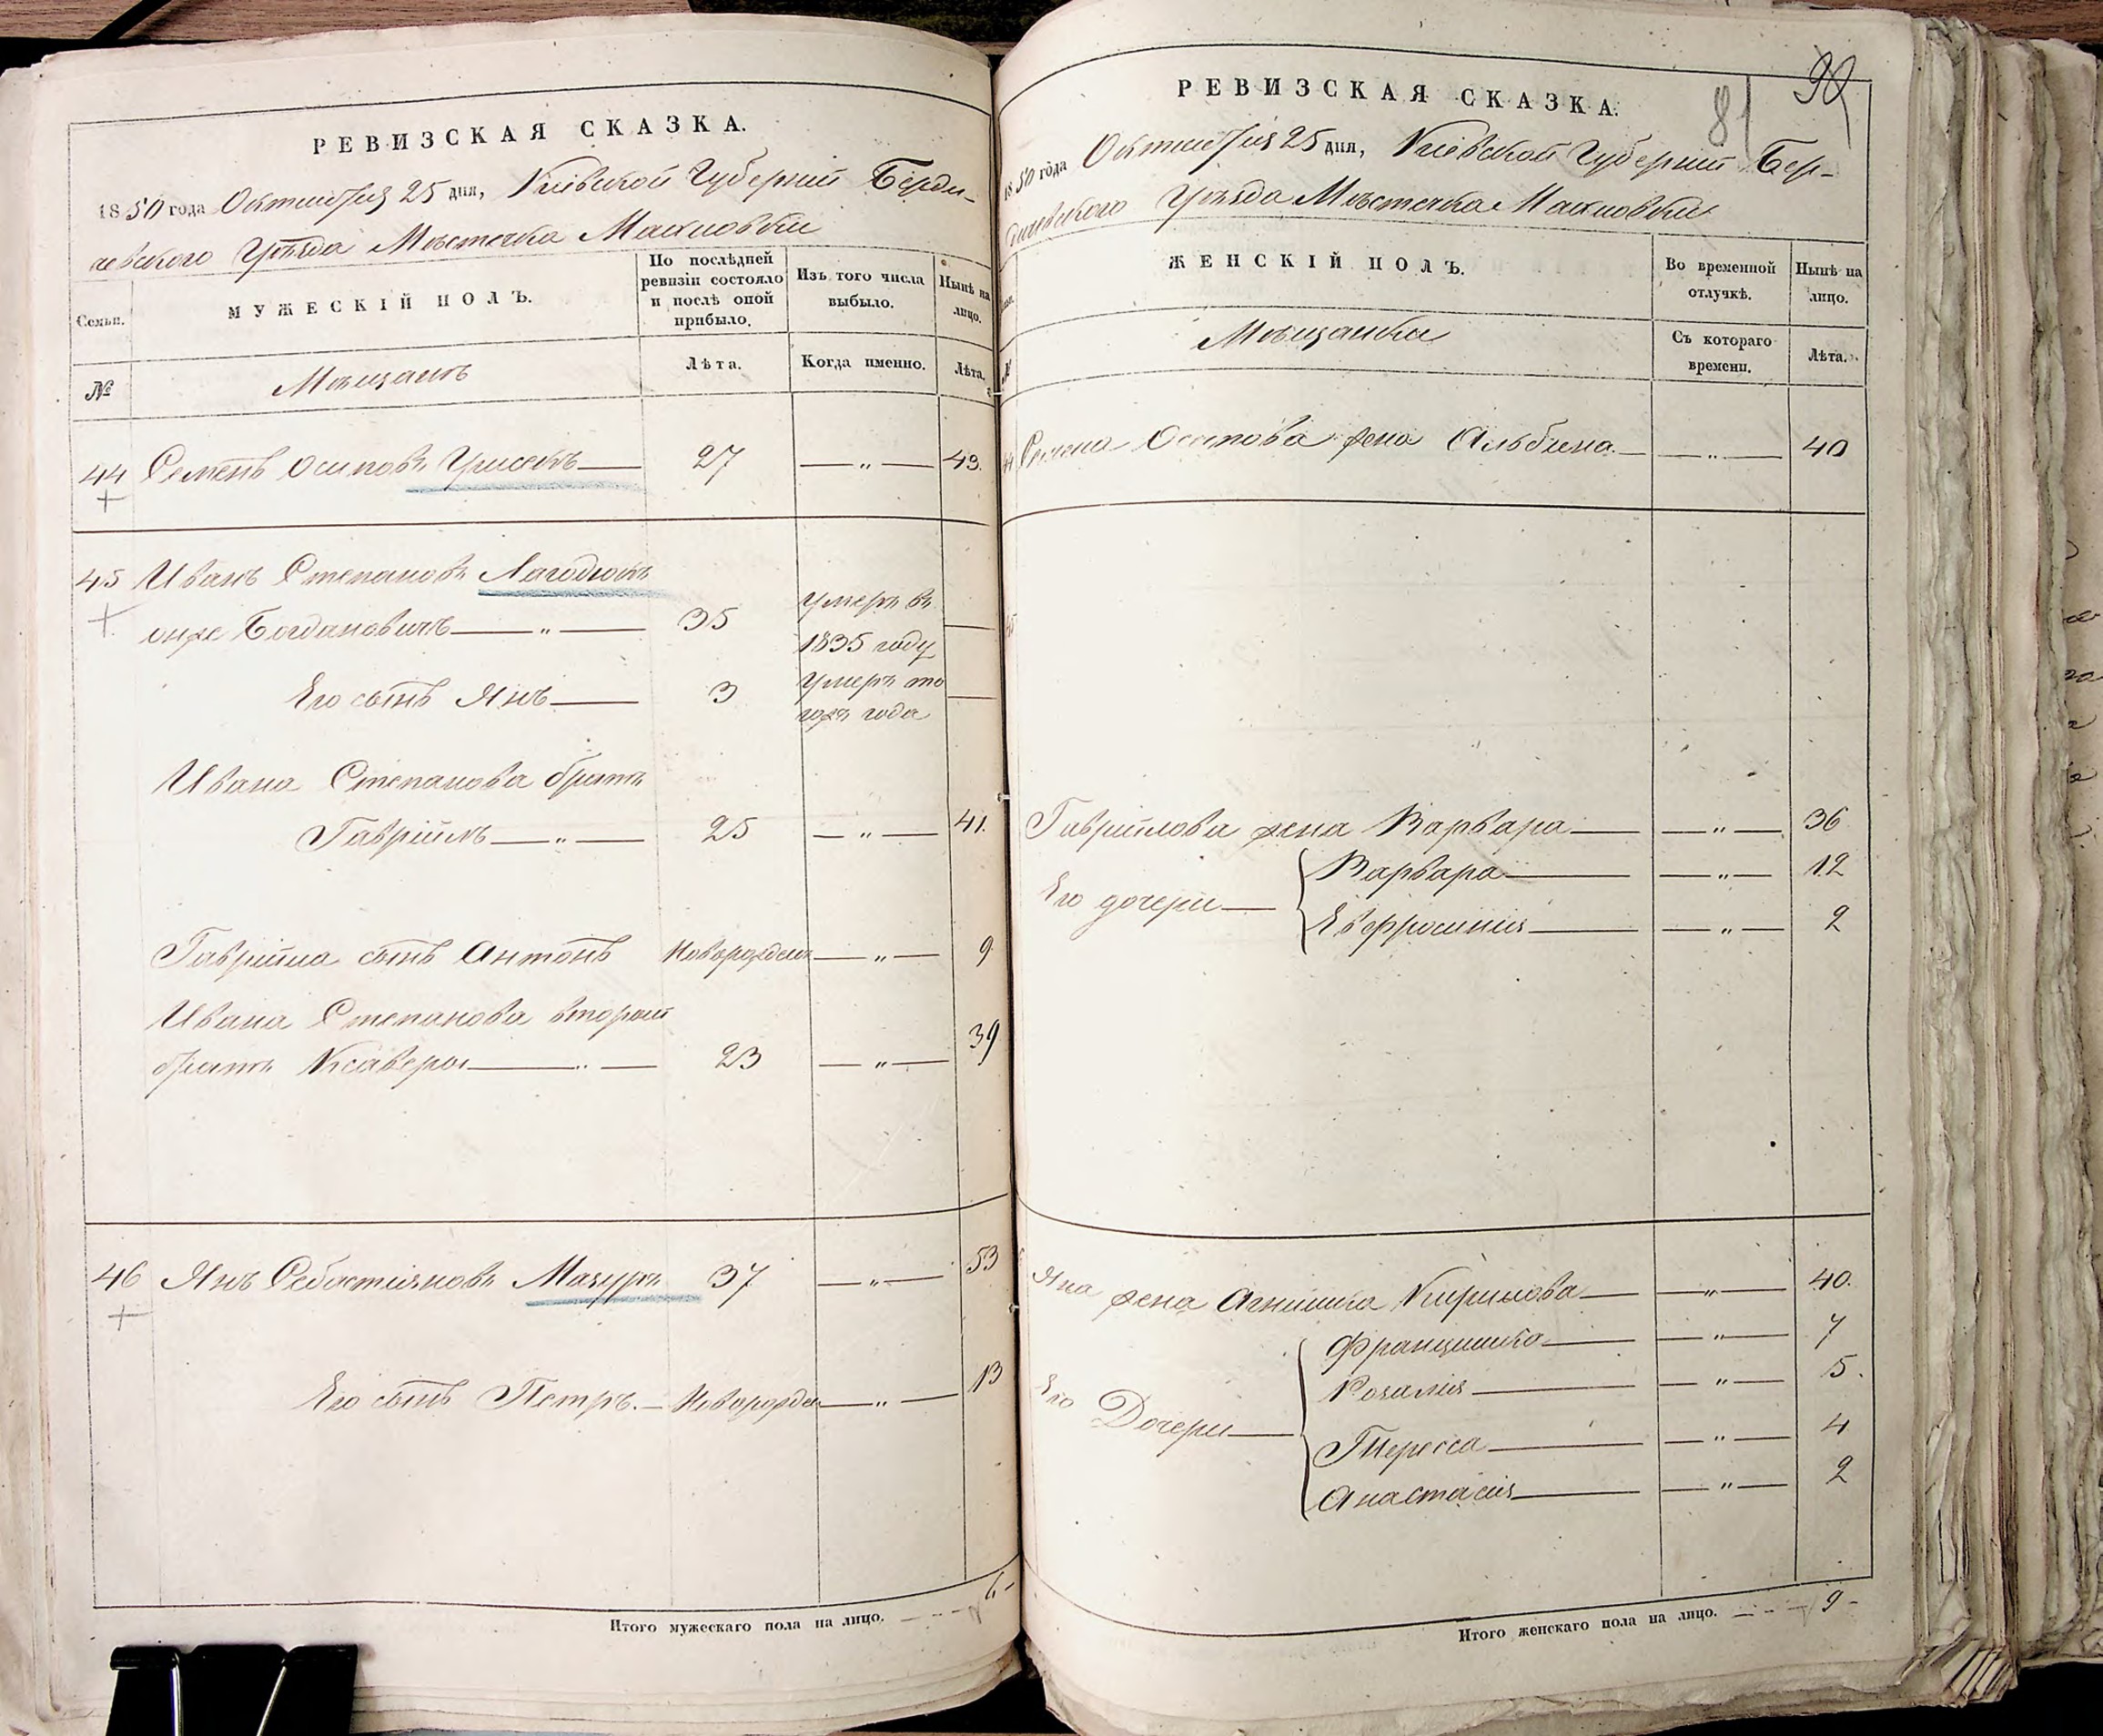 РЕВИЗСКАЯ СКАЗКА.
1850 года Октября 25 дня, Кіевской Губерніи Берди-
чевского Уѣзда Мѣстечка Махновки
Семьи.
МУЖЕСКІЙ ПОЛЪ.
По послѣдней ревизіи состояло и послѣ оной прибыло.
Изъ того числа выбыло.
Нынѣ на лицо.
№
Мѣщанъ
Лѣта.
Когда именно.
Лѣта.
44 Семенъ Осиповъ 27 — „ — 43.
45 Иванъ Степановъ Лагодюкъ
онже Богдановичъ — „ — 35 Умеръ въ 1835 году —
Его сынъ Янъ — 3 Умеръ то гожъ года —
Ивана Степанова братъ
Гавріилъ — „ — 25 — „ — 41.
Гавріила сынъ Антонъ Новорожден — „ — 9
Ивана Степанова второй
братъ Ксаверы — „ — 23 — „ — 39
46 Янъ Себастіяновъ Мазуръ 37 — „ — 53
Его сынъ Петръ. — Новорожден — „ — 13
6 -
Итого мужескаго пола на лицо.
81
РЕВИЗСКАЯ СКАЗКА.
1850 года Октября 25 дня, Кіевской Губерніи Бер-
дичевского Уѣзда Мѣстечка Махновки
ЖЕНСКІЙ ПОЛЪ.
Во временной отлучкѣ.
Нынѣ на лицо.
№
Мѣщанки
Съ котораго времени.
Лѣта.
44 Семена Осипова жена Альбина. — „ — 40
45
Гавріилова жена Варвара — „ — 36
Его дочери —
Варвара — „ — 12
Евфросинія — „ — 2
Яна жена Агнишка Кирилова — „ — 40.
Его Дочери —
Францишка — „ — 7
Розалія — „ — 5.
Тересса — „ — 4
Анастасія — „ — 2
9 -
Итого женскаго пола на лицо.